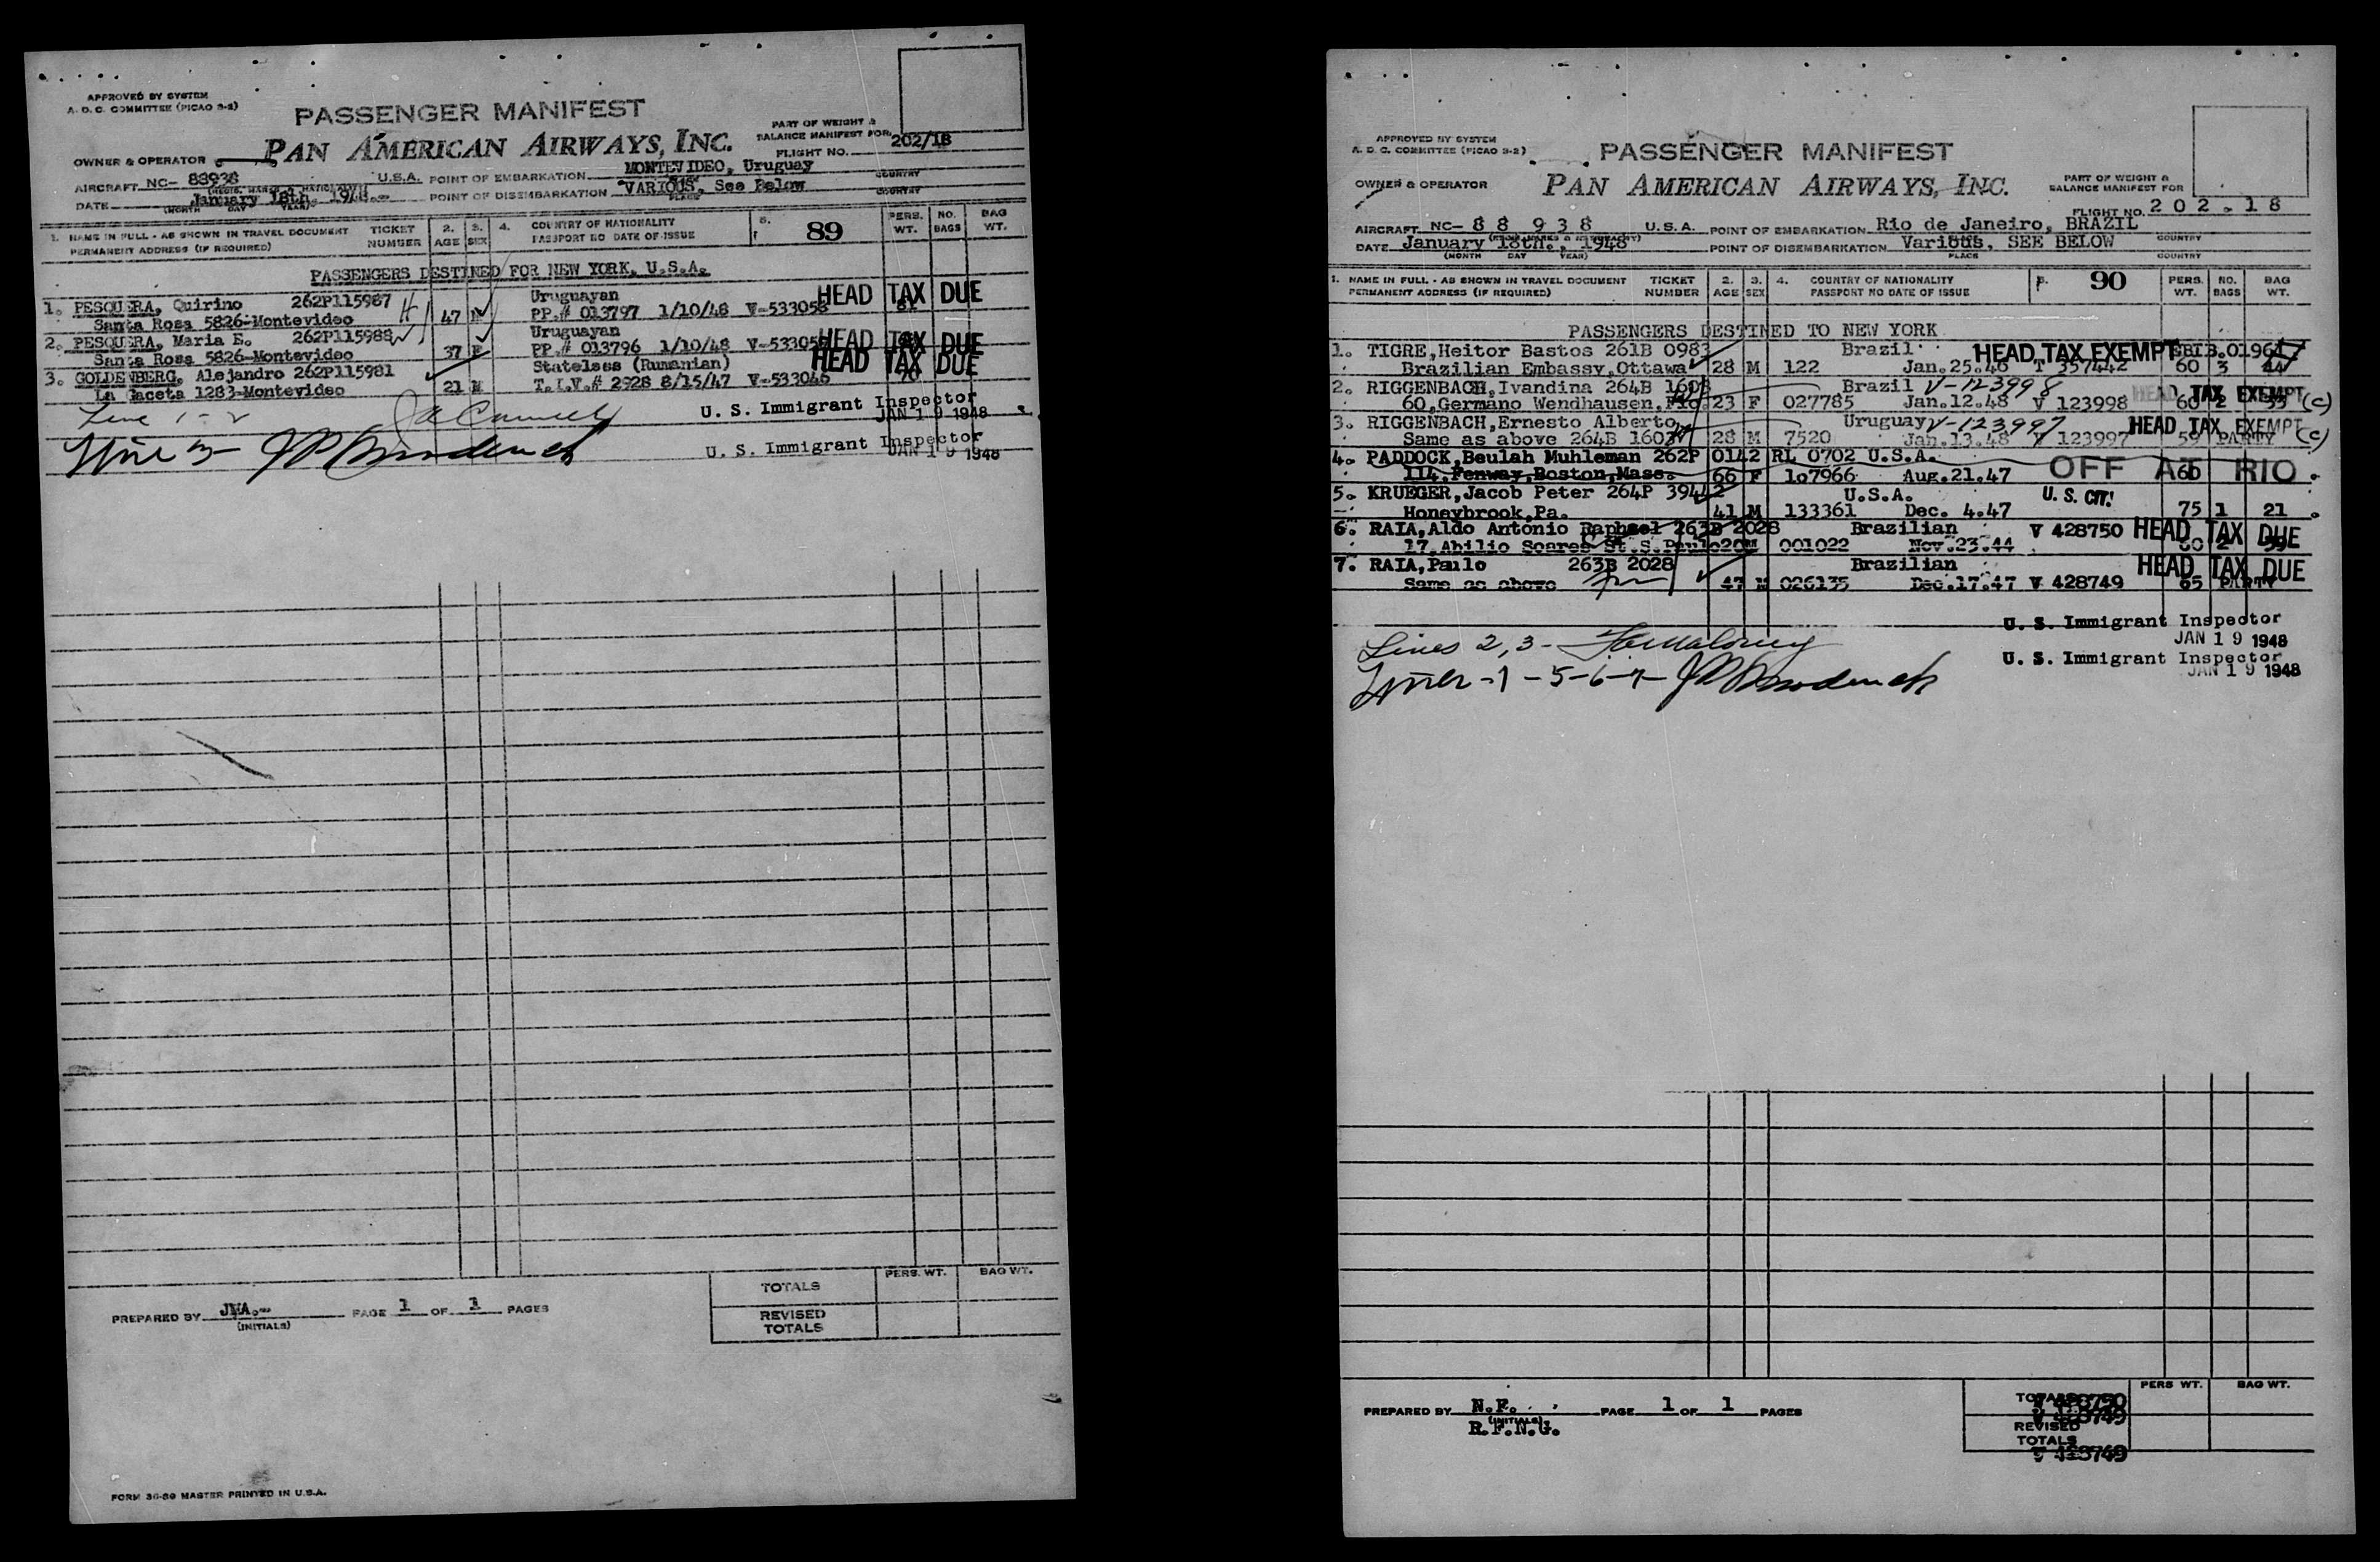 APPROVED BY SYSTEM
A. O. C. COMMITTEE (PICAO 3-2)
PASSENGER MANIFEST
PART OF WEIGHT &
BALANCE MANIFEST FOR
OWNER & OPERATOR
PAN AMERICAN AIRWAYS, INC.
FLIGHT NO. 202/18
AIRCRAFT NC- 88938 U.S.A. POINT OF EMBARKATION MONTEVIDEO, Uruguay
DATE January 18th, 1948.- POINT OF DISEMBARKATION VARIOUS, See Below
(MONTH DAY YEAR) PLACE COUNTRY
1. NAME IN FULL - AS SHOWN IN TRAVEL DOCUMENT TICKET 2. 3. 4. COUNTRY OF NATIONALITY 5. 89 PERS. NO. BAG
PERMANENT ADDRESS (IF REQUIRED) NUMBER AGE SEX PASSPORT NO DATE OF ISSUE WT. BAGS WT.
PASSENGERS DESTINED FOR NEW YORK, U.S.A.
1. PESQUERA, Quirino 262P115987 Uruguayan HEAD TAX DUE
Santa Rosa 5826-Montevideo 47 M PP.# 013797 1/10/48 V-533058
2. PESQUERA, Maria E. 262P115988 Uruguayan HEAD TAX DUE
Santa Rosa 5826-Montevideo 37 F PP.# 013796 1/10/48
3. GOLDENBERG, Alejandro 262P115981 Stateless (Rumanian) HEAD TAX DUE
La Gaceta 1283-Montevideo 21 M T.I.V.# 2928 8/15/47 V-533046 70
Line 1-2
U. S. Immigrant Inspector
JAN 19 1948
Line 3-
U. S. Immigrant Inspector
JAN 19 1948
TOTALS PERS. WT. BAG WT.
REVISED
TOTALS
PREPARED BY JMA.- PAGE 1 OF 1 PAGES
(INITIALS)
FORM 36-80 MASTER PRINTED IN U.S.A.
APPROVED BY SYSTEM
A. O. C. COMMITTEE (PICAO 3-2)
PASSENGER MANIFEST
OWNER & OPERATOR
PAN AMERICAN AIRWAYS, INC.
PART OF WEIGHT &
BALANCE MANIFEST FOR
FLIGHT NO. 202.18
AIRCRAFT NC- 88 938 U.S.A. POINT OF EMBARKATION Rio de Janeiro, BRAZIL
DATE January 18th., 1948 POINT OF DISEMBARKATION Various, SEE BELOW
(MONTH DAY YEAR) PLACE COUNTRY
1. NAME IN FULL - AS SHOWN IN TRAVEL DOCUMENT TICKET 2. 3. 4. COUNTRY OF NATIONALITY 90 PERS. NO. BAG
PERMANENT ADDRESS (IF REQUIRED) NUMBER AGE SEX PASSPORT NO DATE OF ISSUE WT. BAGS WT.
PASSENGERS DESTINED TO NEW YORK
1. TIGRE, Heitor Bastos 261B 0983 Brazil HEAD TAX EXEMPT
Brazilian Embassy, Ottawa 28 M 122 Jan.25.46 T 357442 60 3 44
2. RIGGENBACH, Ivandina 264B 1603 Brazil V-123998 HEAD TAX EXEMPT (c)
60, Germano Wendhausen, 23 F 027785 Jan.12.48 V 123998 60 2
3. RIGGENBACH, Ernesto Alberto Uruguay V-123997 HEAD TAX EXEMPT (c)
Same as above 264B 1603 28 M 7520 Jan.13.48 V 123997 59 PARTY
4. PADDOCK, Beulah Muhleman 262P 0142 RL 0702 U.S.A. OFF AT RIO
114, Fenway, Boston, Mass. 66 F 107966 Aug.21.47 60
5. KRUEGER, Jacob Peter 264P 39442 U.S.A. U. S. CIT.
Honeybrook, Pa. 41 M 133361 Dec. 4.47 75 1 21
6. RAIA, Aldo Antonio Raphael 263B 2028 Brazilian V 428750 HEAD TAX DUE
17, Abilio Soares St. S. Paulo 20 M 001022 Nov.23.44
7. RAIA, Paulo 263B 2028 Brazilian HEAD TAX DUE
Same as above 47 M 026135 Dec.17.47 V 428749 65 PARTY
U. S. Immigrant Inspector
JAN 19 1948
Lines 2,3-
U. S. Immigrant Inspector
JAN 19 1948
Lines -1-5-6-7-
PERS WT. BAG WT.
TOTALS
REVISED
TOTALS
V 428749
PREPARED BY N.F. PAGE 1 OF 1 PAGES
(INITIALS)
R.F.N.G.